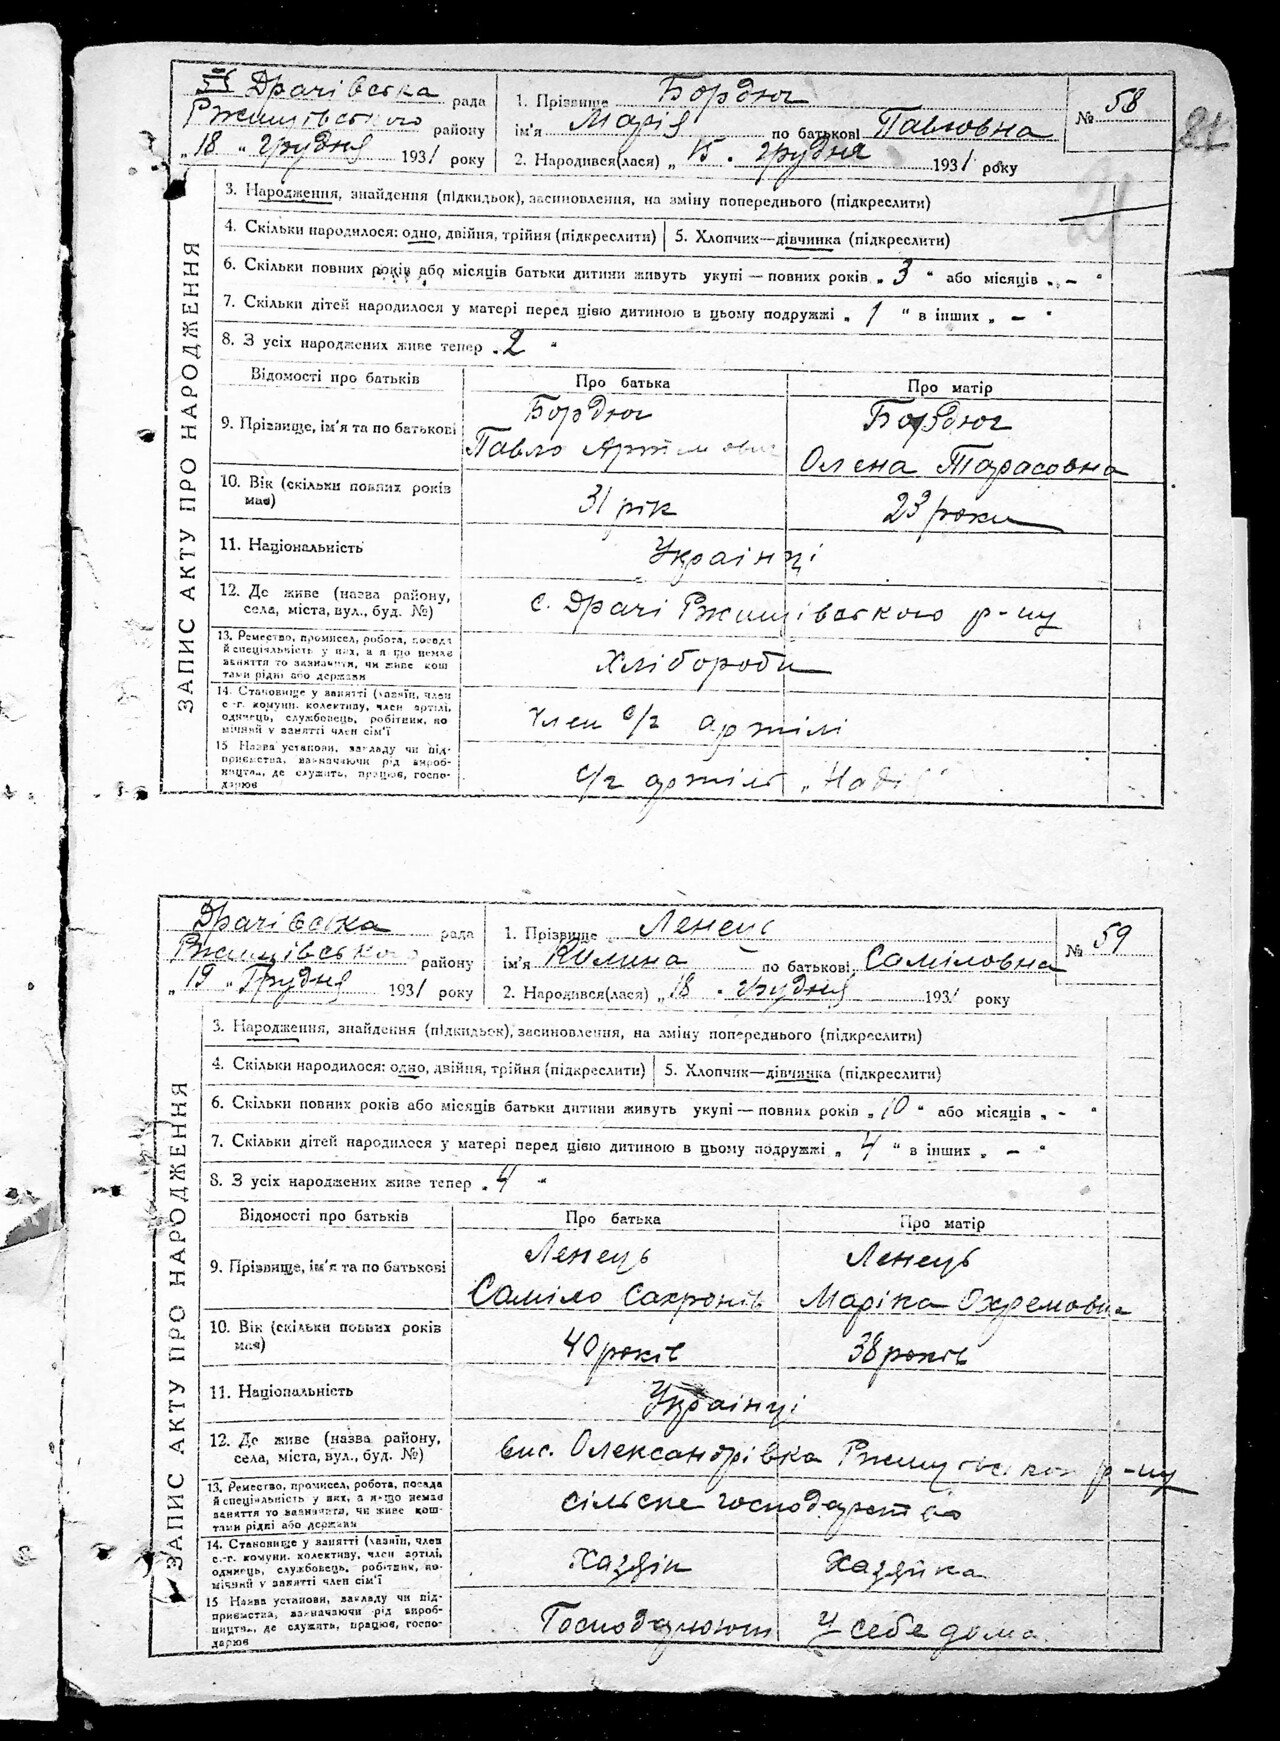 Драчівська рада
Ржищівського району
„18 „ грудня 1931 року
1. Прізвище Бордюг
ім'я Марія по батькові Павловна
2. Народився(лася) „ 15 . грудня 1931 року
№ 58
81
ЗАПИС АКТУ ПРО НАРОДЖЕННЯ
3. Народження, знайдення (підкидьок), засиновлення, на зміну попереднього (підкреслити)
4. Скільки народилося: одно, двійня, трійня (підкреслити) 5. Хлопчик—дівчинка (підкреслити)
6. Скільки повних років або місяців батьки дитини живуть укупі — повних років „ 3 " або місяців „ - "
7. Скільки дітей народилося у матері перед цією дитиною в цьому подружжі „ 1 " в інших „ - "
8. З усіх народжених живе тепер „ 2 "
Відомості про батьків Про батька Про матір
9. Прізвище, ім'я та по батькові
Бордюг Бордюг
Павло Артемович Олена Тарасовна
10. Вік (скільки повних років має) 31 рік 23 роки
11. Національність Українці
12. Де живе (назва району, села, міста, вул., буд. №) с. Драчі Ржищівського р-ну
13. Ремество, промисел, робота, посада й спеціяльність у них, а якщо немає заняття то зазначити, чи живе коштами рідні або держави
Хлібороби
14. Становище у занятті (хазяїн, член с.-г. комуни, колективу, член артілі, одинець, службовець, робітник, помічний у занятті член сім'ї
член с/г артілі
15 Назва установи, закладу чи підприємства, зазначаючи рід виробництва, де служить, працює, господарює
с/г артіль „Надія
Драчівська рада
Ржищівського району
„ 19 „ Грудня 1931 року
1. Прізвище Ленець
ім'я Килина по батькові Саміловна
2. Народився(лася) „ 18 . грудня 1931 року
№ 59
ЗАПИС АКТУ ПРО НАРОДЖЕННЯ
3. Народження, знайдення (підкидьок), засиновлення, на зміну попереднього (підкреслити)
4. Скільки народилося: одно, двійня, трійня (підкреслити) 5. Хлопчик—дівчинка (підкреслити)
6. Скільки повних років або місяців батьки дитини живуть укупі — повних років „ 10 " або місяців „ - "
7. Скільки дітей народилося у матері перед цією дитиною в цьому подружжі „ 4 " в інших „ - "
8. З усіх народжених живе тепер „ 4 "
Відомості про батьків Про батька Про матір
9. Прізвище, ім'я та по батькові
Ленець Ленець
Саміло Сахронів Маріка Охремовна
10. Вік (скільки повних років має) 40 років 38 років
11. Національність Українці
12. Де живе (назва району, села, міста, вул., буд. №) вис. Олександрівка Ржищівського р-ну
13. Ремество, промисел, робота, посада й спеціяльність у них, а якщо немає заняття то зазначити, чи живе коштами рідні або держави
сільске господарство
14. Становище у занятті (хазяїн, член с.-г. комуни, колективу, член артілі, одинець, службовець, робітник, помічний у занятті член сім'ї
Хазяін Хазяйка
15 Назва установи, закладу чи підприємства, зазначаючи рід виробництва, де служить, працює, господарює
Господарюют у себе дома